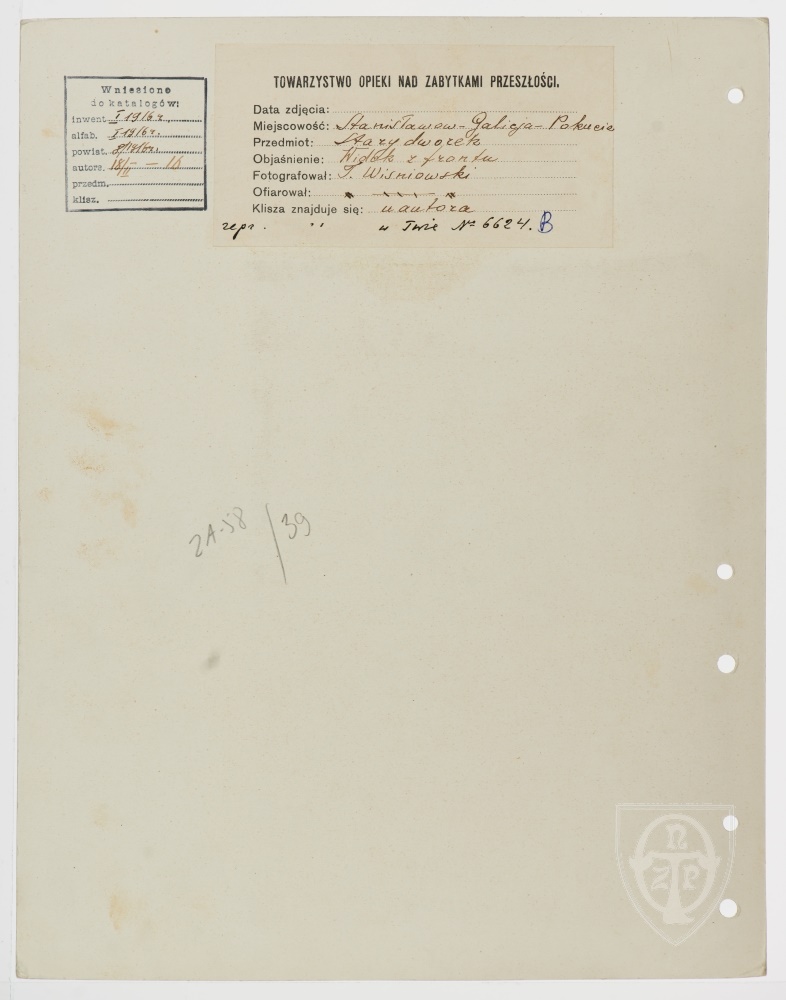 Wniesione
do katalogów:
inwent. I 1916 r.
alfab. I 1916 r.
powiat.
autors. 18/II — 16
przedm.
klisz.
TOWARZYSTWO OPIEKI NAD ZABYTKAMI PRZESZŁOŚCI.
Data zdjęcia:
Miejscowość: Stanisławow - Galicja - Pokucie
Przedmiot: Stary dworek
Objaśnienie: Widok z frontu
Fotografował: J. Wiśniowski
Ofiarował: " " "
Klisza znajduje się: u autora
repr. " w Twie № 6624. B
2A-58/39
TONZP